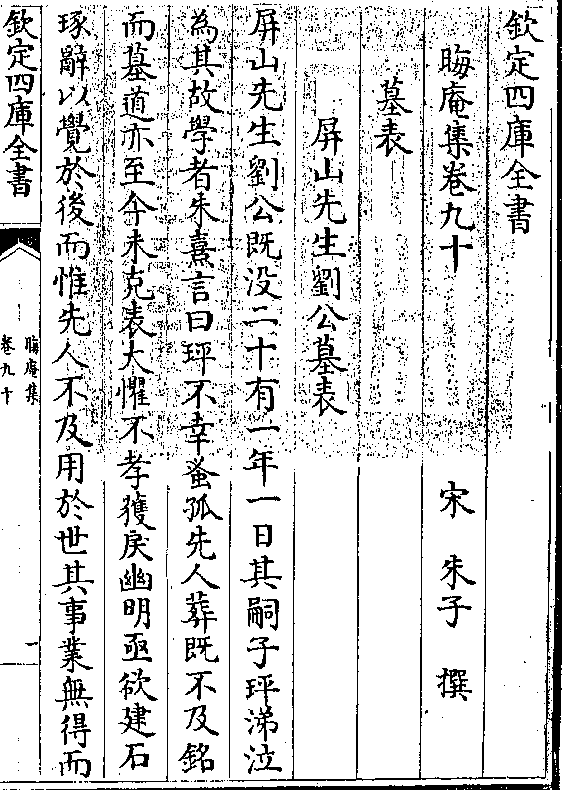 欽定四庫全書
晦庵集卷九十
宋 朱子 撰
墓表
屏山先生劉公墓表
屏山先生劉公既没二十有一年一日其嗣子玶涕泣
為其故學者朱熹言曰玶不幸蚤孤先人葬既不及銘
而墓道亦至今未克表大懼不孝獲戾幽明亟欲建石
琢辭以覺於後而惟先人不及用於世其事業無得而
欽定四庫全書
晦庵集
卷九十
一